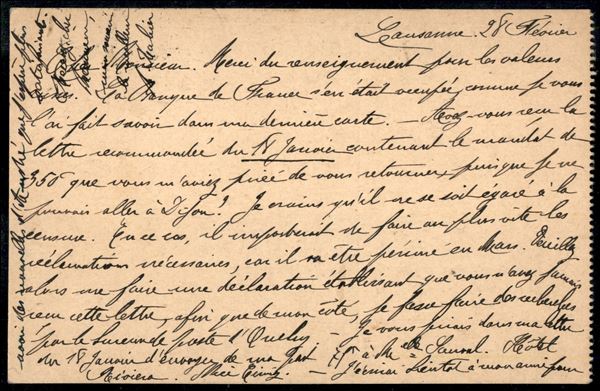 Lausanne. 28 Février
Monsieur. Merci du renseignement pour les valeurs
La Banque de France s'en était occupée, comme je vous
l'ai fait savoir dans ma dernière carte. — Avez-vous reçu la
lettre recommandée du 18 Janvier contenant le mandat de
350 que vous m'aviez priée de vous retourner, puisque je ne
pouvais aller à Dijon? Je crains qu'il ne se soit égaré à la
censure. En ce cas, il importerait de faire au plus vite les
réclamations nécessaires, car il va être périmé en Mars. Veuillez
alors me faire une déclaration établissant que vous n'avez jamais
reçu cette lettre, afin que de mon côté, je fasse faire des recherches
par le bureau de poste d'Ouchy — Je vous priais dans ma lettre
du 18 Janvier d'envoyer de ma part 75 f à Melle Hôtel
Riviera. Nice — J'écrirai bientôt à
avoir des nouvelles